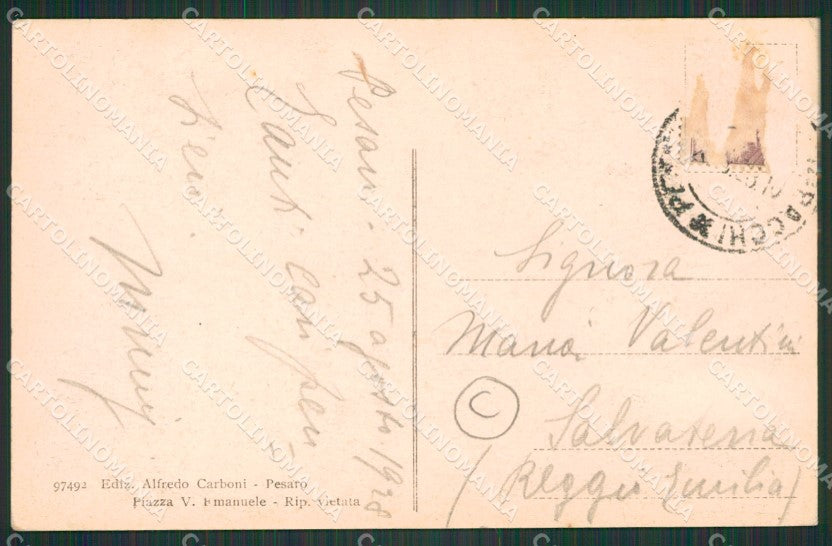 Pesaro - 25 agosto 1928
Tanti cari pen-
sieri
Signora
Maria Valentini
C
Salvaterra
(Reggio Emilia)
97492 Ediz. Alfredo Carboni - Pesaro
Piazza V. Emanuele - Rip. vietata
PACCHI * PES
CARTOLINOMANIA